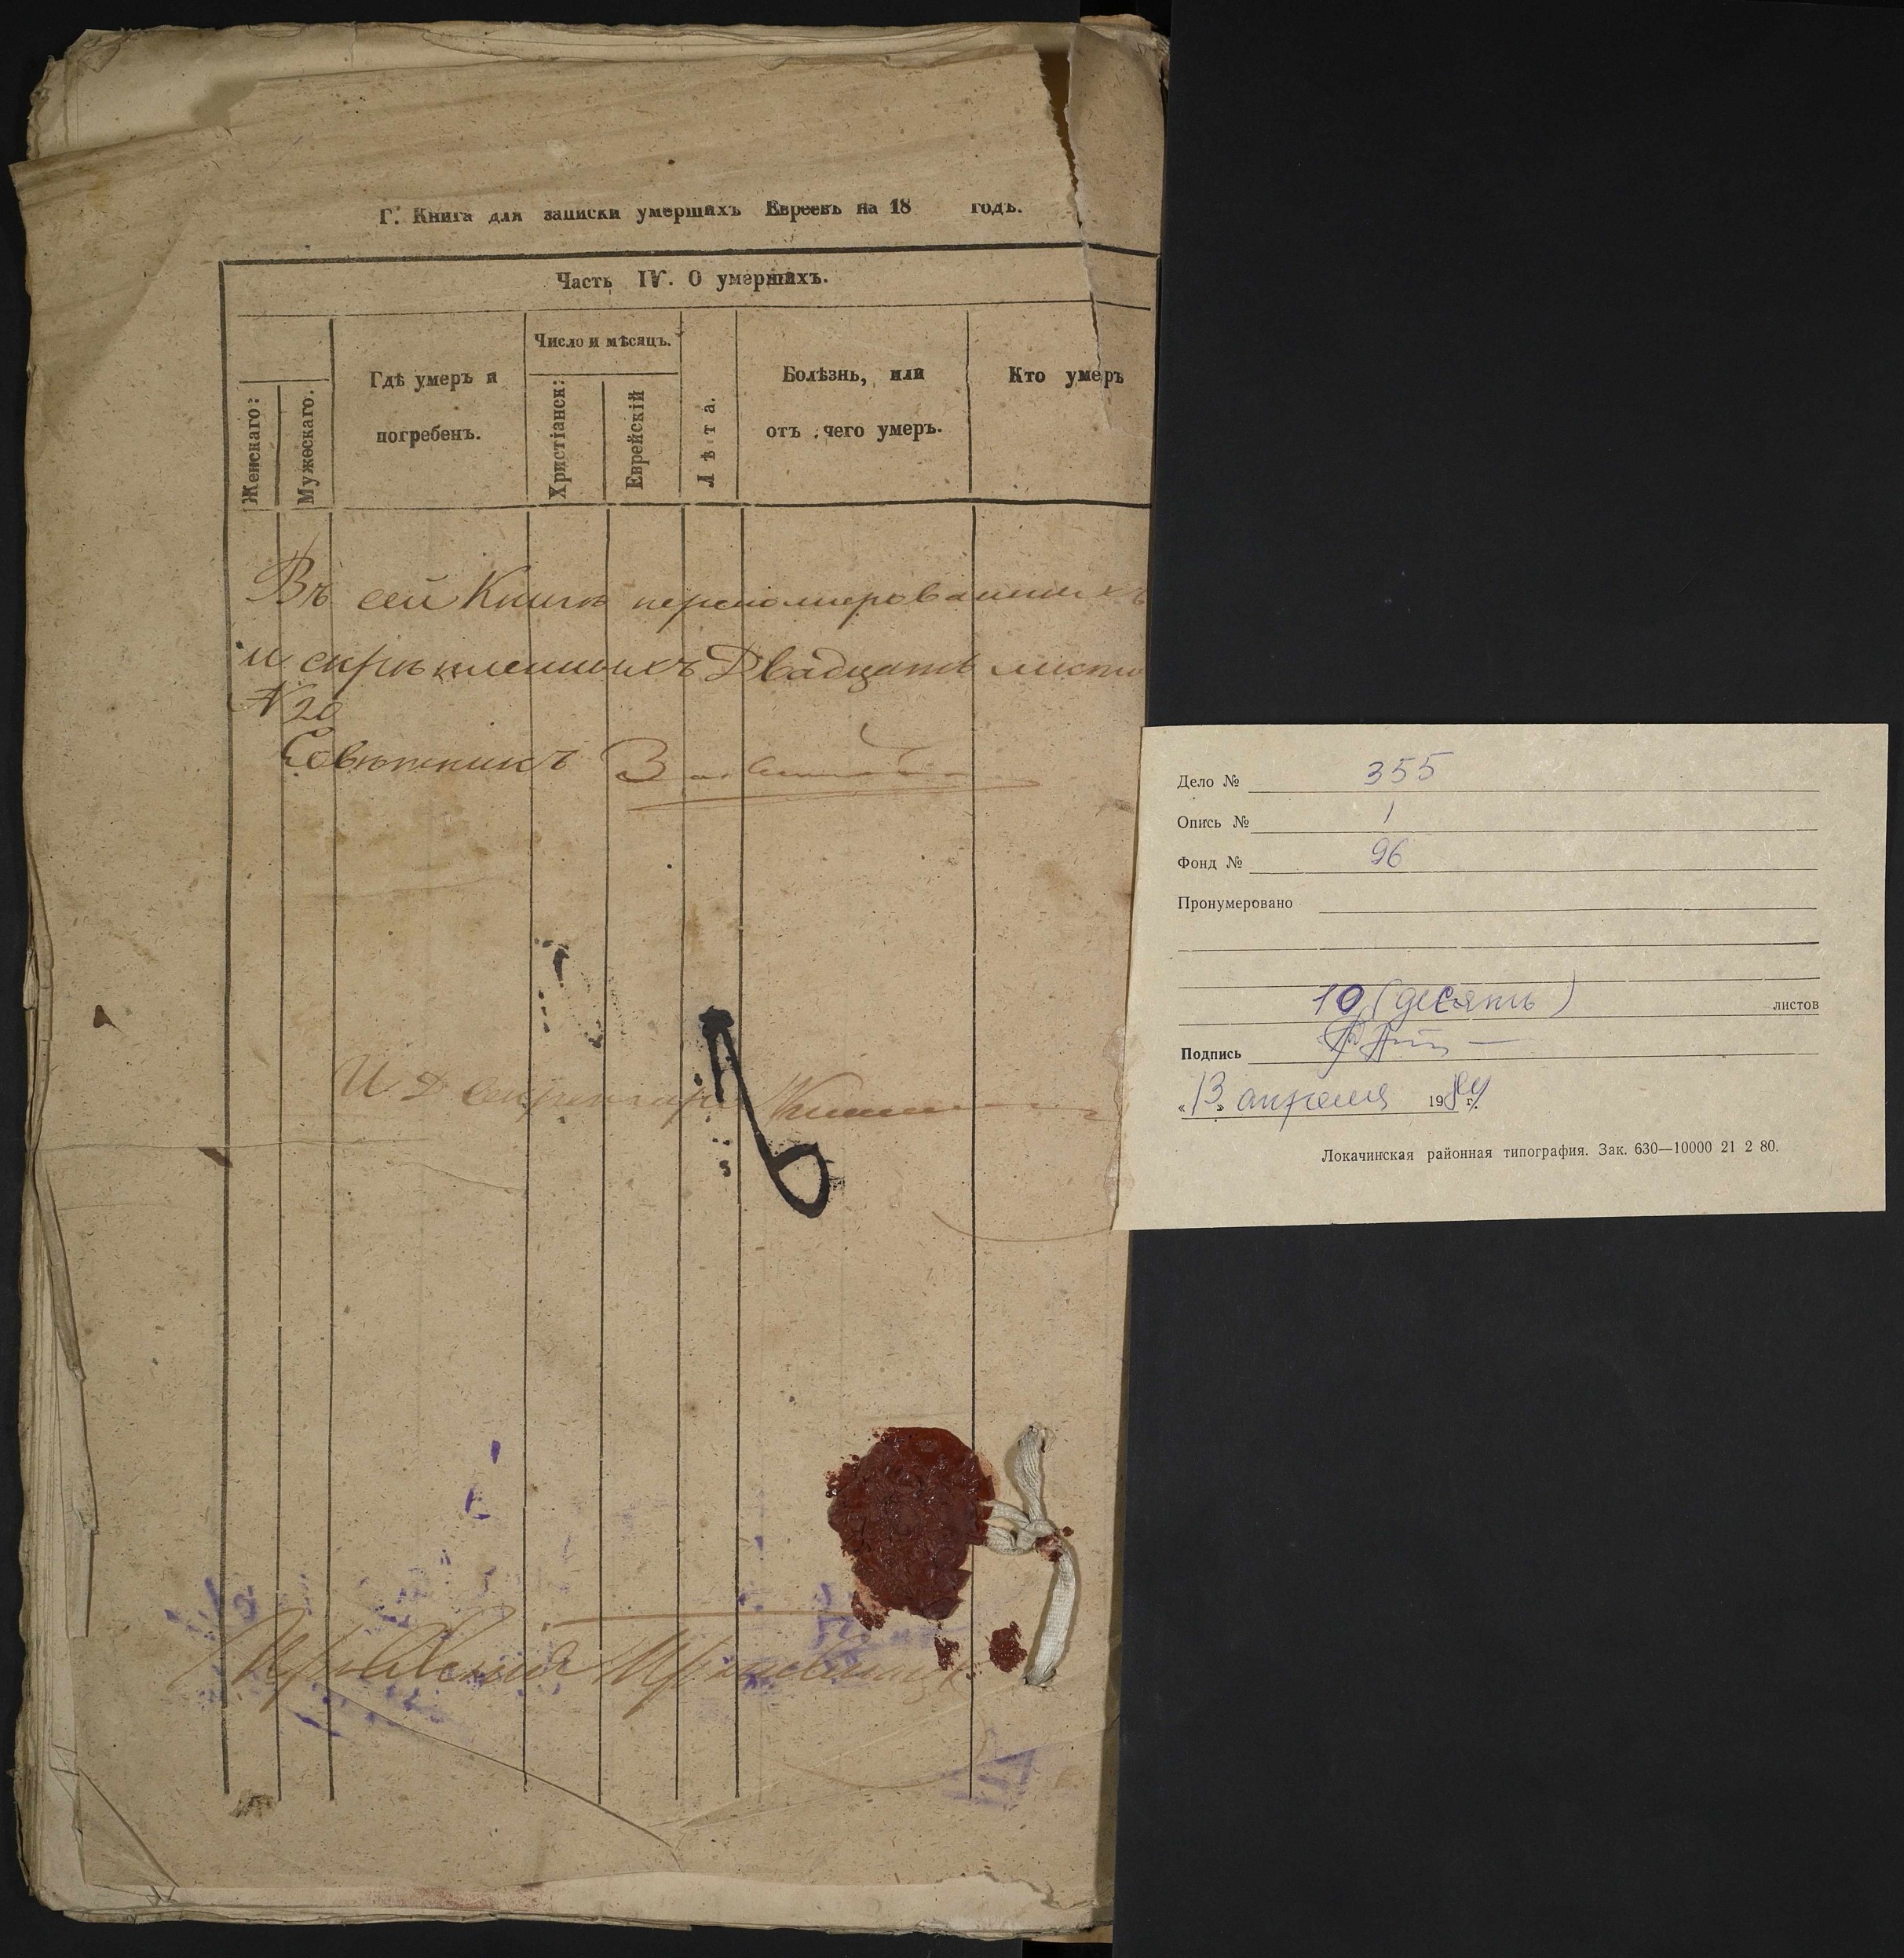 Г. Книга для записки умершихъ Евреевъ на 18 годъ.
Часть IV. О умершихъ.
Женскаго:
Мужескаго.
Гдѣ умеръ и
погребенъ.
Число и мѣсяцъ.
Христіанск:
Еврейскій
Лѣта.
Болѣзнь, или
отъ чего умеръ.
Кто умеръ
Въ сей Книгѣ переномерованныхъ
и скрѣпленныхъ Двадцать листо
№ 20
Совѣтникъ
И Д Секретаря
Дело № 355
Опись № 1
Фонд № 96
Пронумеровано
10 (десять) листов
Подпись
«13» апреля 1984 г.
Локачинская районная типография. Зак. 630—10000 21 2 80.